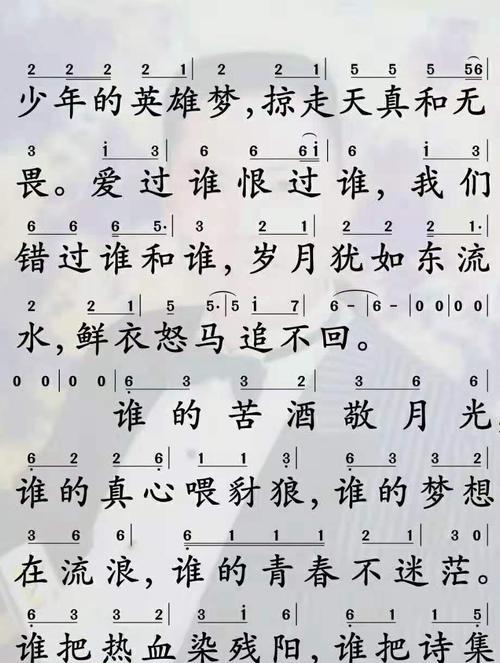 2 2 2 2 1| 2 2 1| 5 5 5 56
少年的英雄梦,掠走天真和无
3 i 3| 6 6 6i| 3 i 3|
畏。爱过谁恨过谁,我们
6 6 6 5·| 3 2 1| 2 2 2 1·|
错过谁和谁,岁月犹如东流
2 2 1| 5 5 5·|5 i 7| 6-|6-|0 0|0 0|
水,鲜衣怒马追不回。
0 0|0 0| 6 3 3 2| 3 6 6|
谁的苦酒敬月光,
6 2 2 6| 1 1 3| 6 2 2 6|
谁的真心喂豺狼,谁的梦想
3 6 6| 6 1 1 1 2 2 1| 3 0|
在流浪,谁的青春不迷茫。
6 3 3 2| 3 6 6| 6 1 1 5|
谁把热血染残阳,谁把诗集